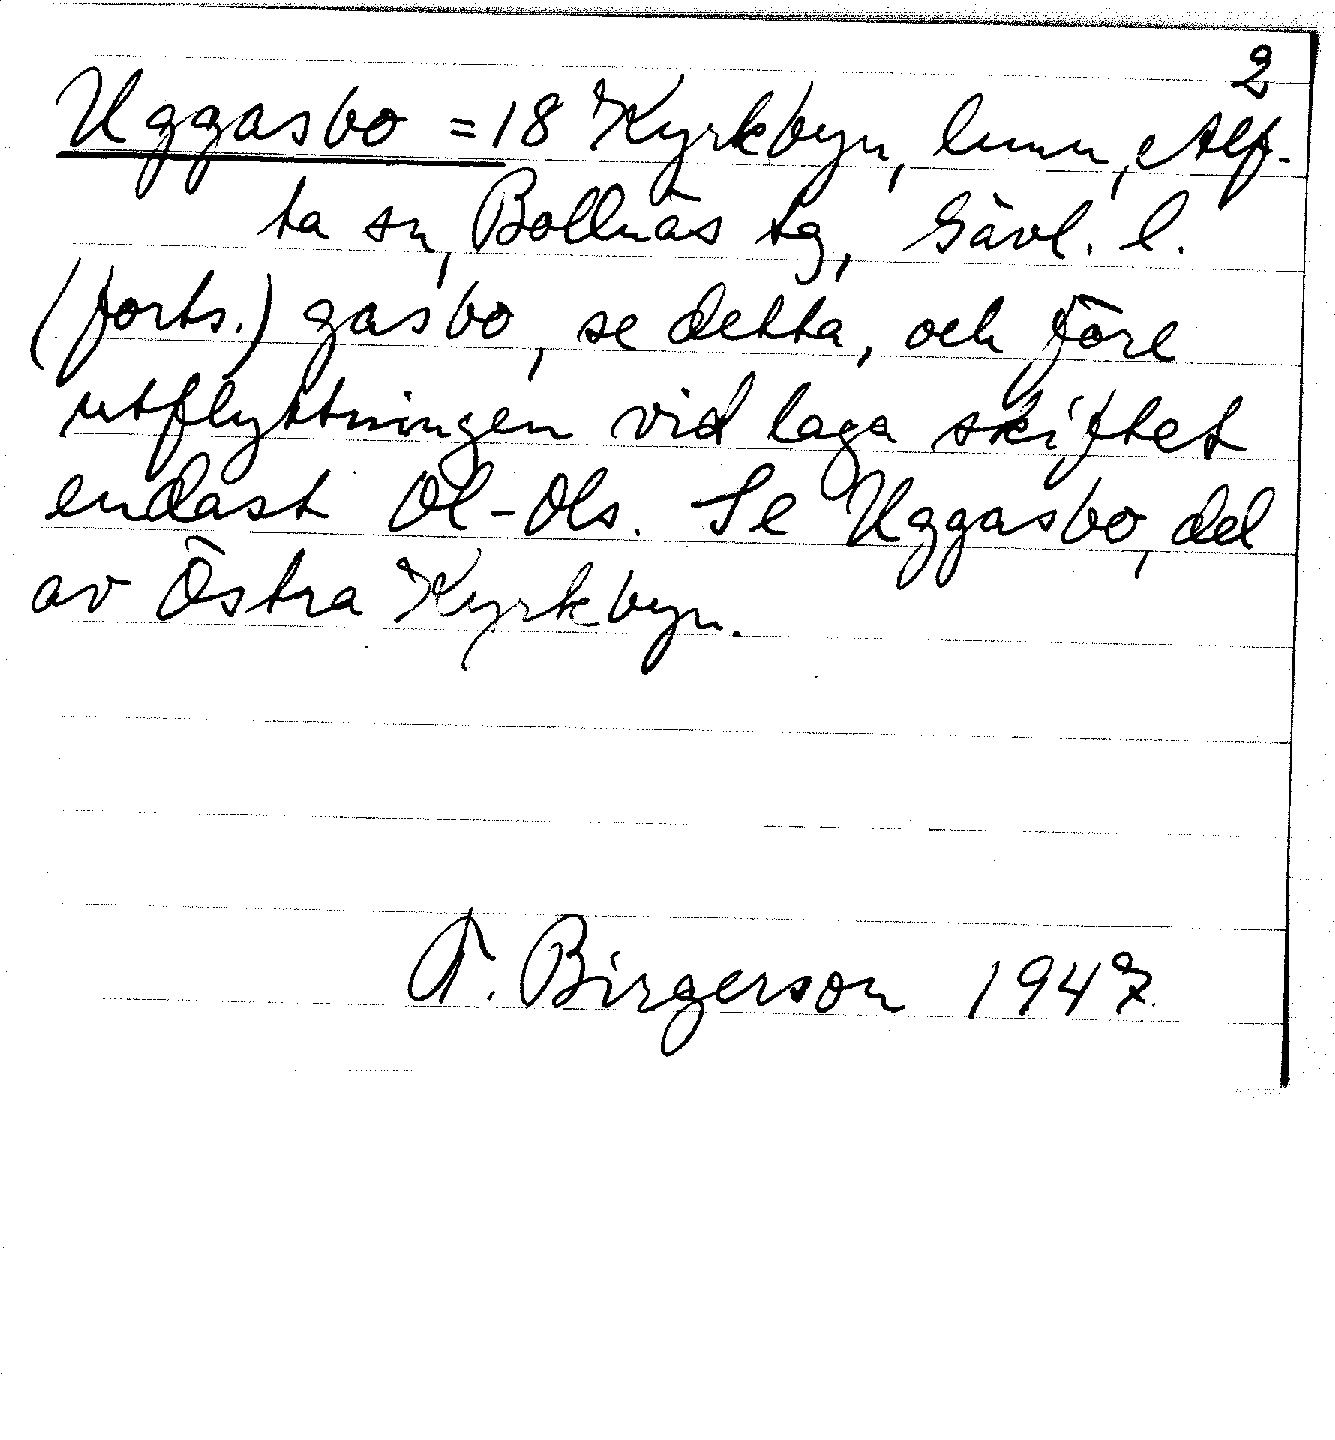 2
Uggasbo = 18 Kyrkbyn, hmn, Alf-
ta sn, Bollnäs tg, Gävl. l.
(forts.) gasbo, se detta, och före
utflyttningen vid laga skiftet
endast Ol-Ols. Se Uggasbo, del
av Östra Kyrkbyn.
F. Birgerson 1947